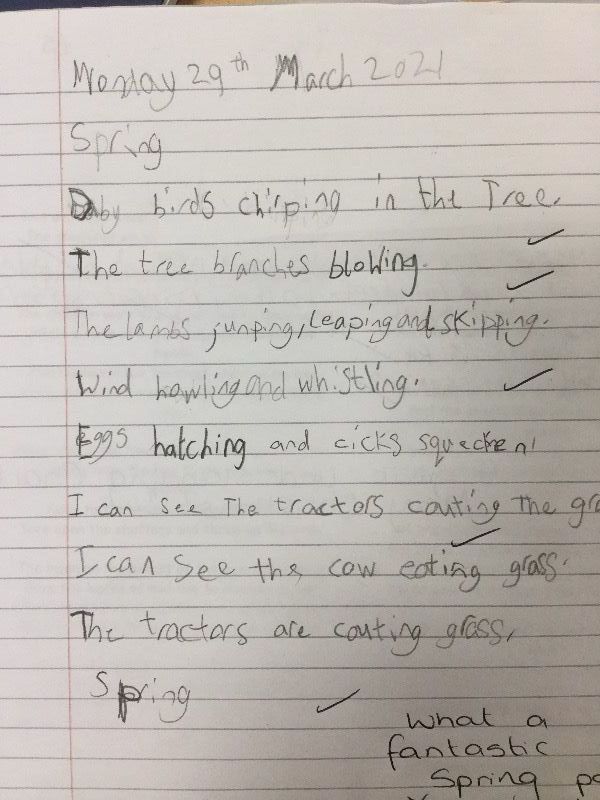 Monday 29th March 2021
Spring
Baby birds chirping in the Tree.
The tree branches blowing.
The lambs junping, leaping and skipping.
Wind howling and whistling.
Eggs hatching and cicks
I can see The tractors couting The gra
I can see the cow eating grass.
The tractors are couting grass,
Spring
What a
fantastic
Spring po